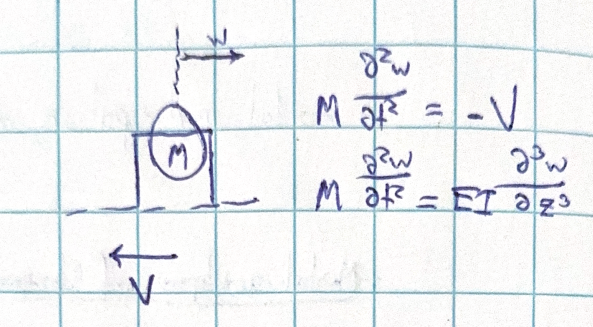 w
M ∂²w/∂t² = -V
M
M ∂²w/∂t² = EI ∂³w/∂z³
V